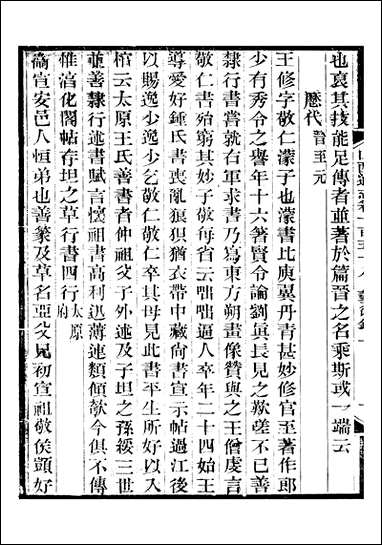 也裒其技能足傳者並著於篇晉之名乘斯或一端云
歷代 晉至元
王修字敬仁濛子也濛書比庾翼丹青甚妙修官至著作郎
少有秀令之譽年十六著賢令論劉真長見之歎嗟不已善
隸行書嘗就右軍求書乃寫東方朔畫像贊與之王僧虔言
敬仁書殆窮其妙子敬每省云咄咄逼人卒年二十四始王
導愛好鍾氏書喪亂狼狽猶衣帶中藏尚書宣示帖過江後
以賜逸少逸少乞敬仁敬仁卒其母見此書平生所好以入
棺云太原王氏善書者仲祖父子外述及子坦之孫綏三世
並善隸行述書賦言懷祖書高利迅薄連類傾欹今俱不傳
惟淳化閣帖存坦之草行書四行 太原府
衞宣安邑人恒弟也善篆及草名亞父兄初宣祖敬侯顗好